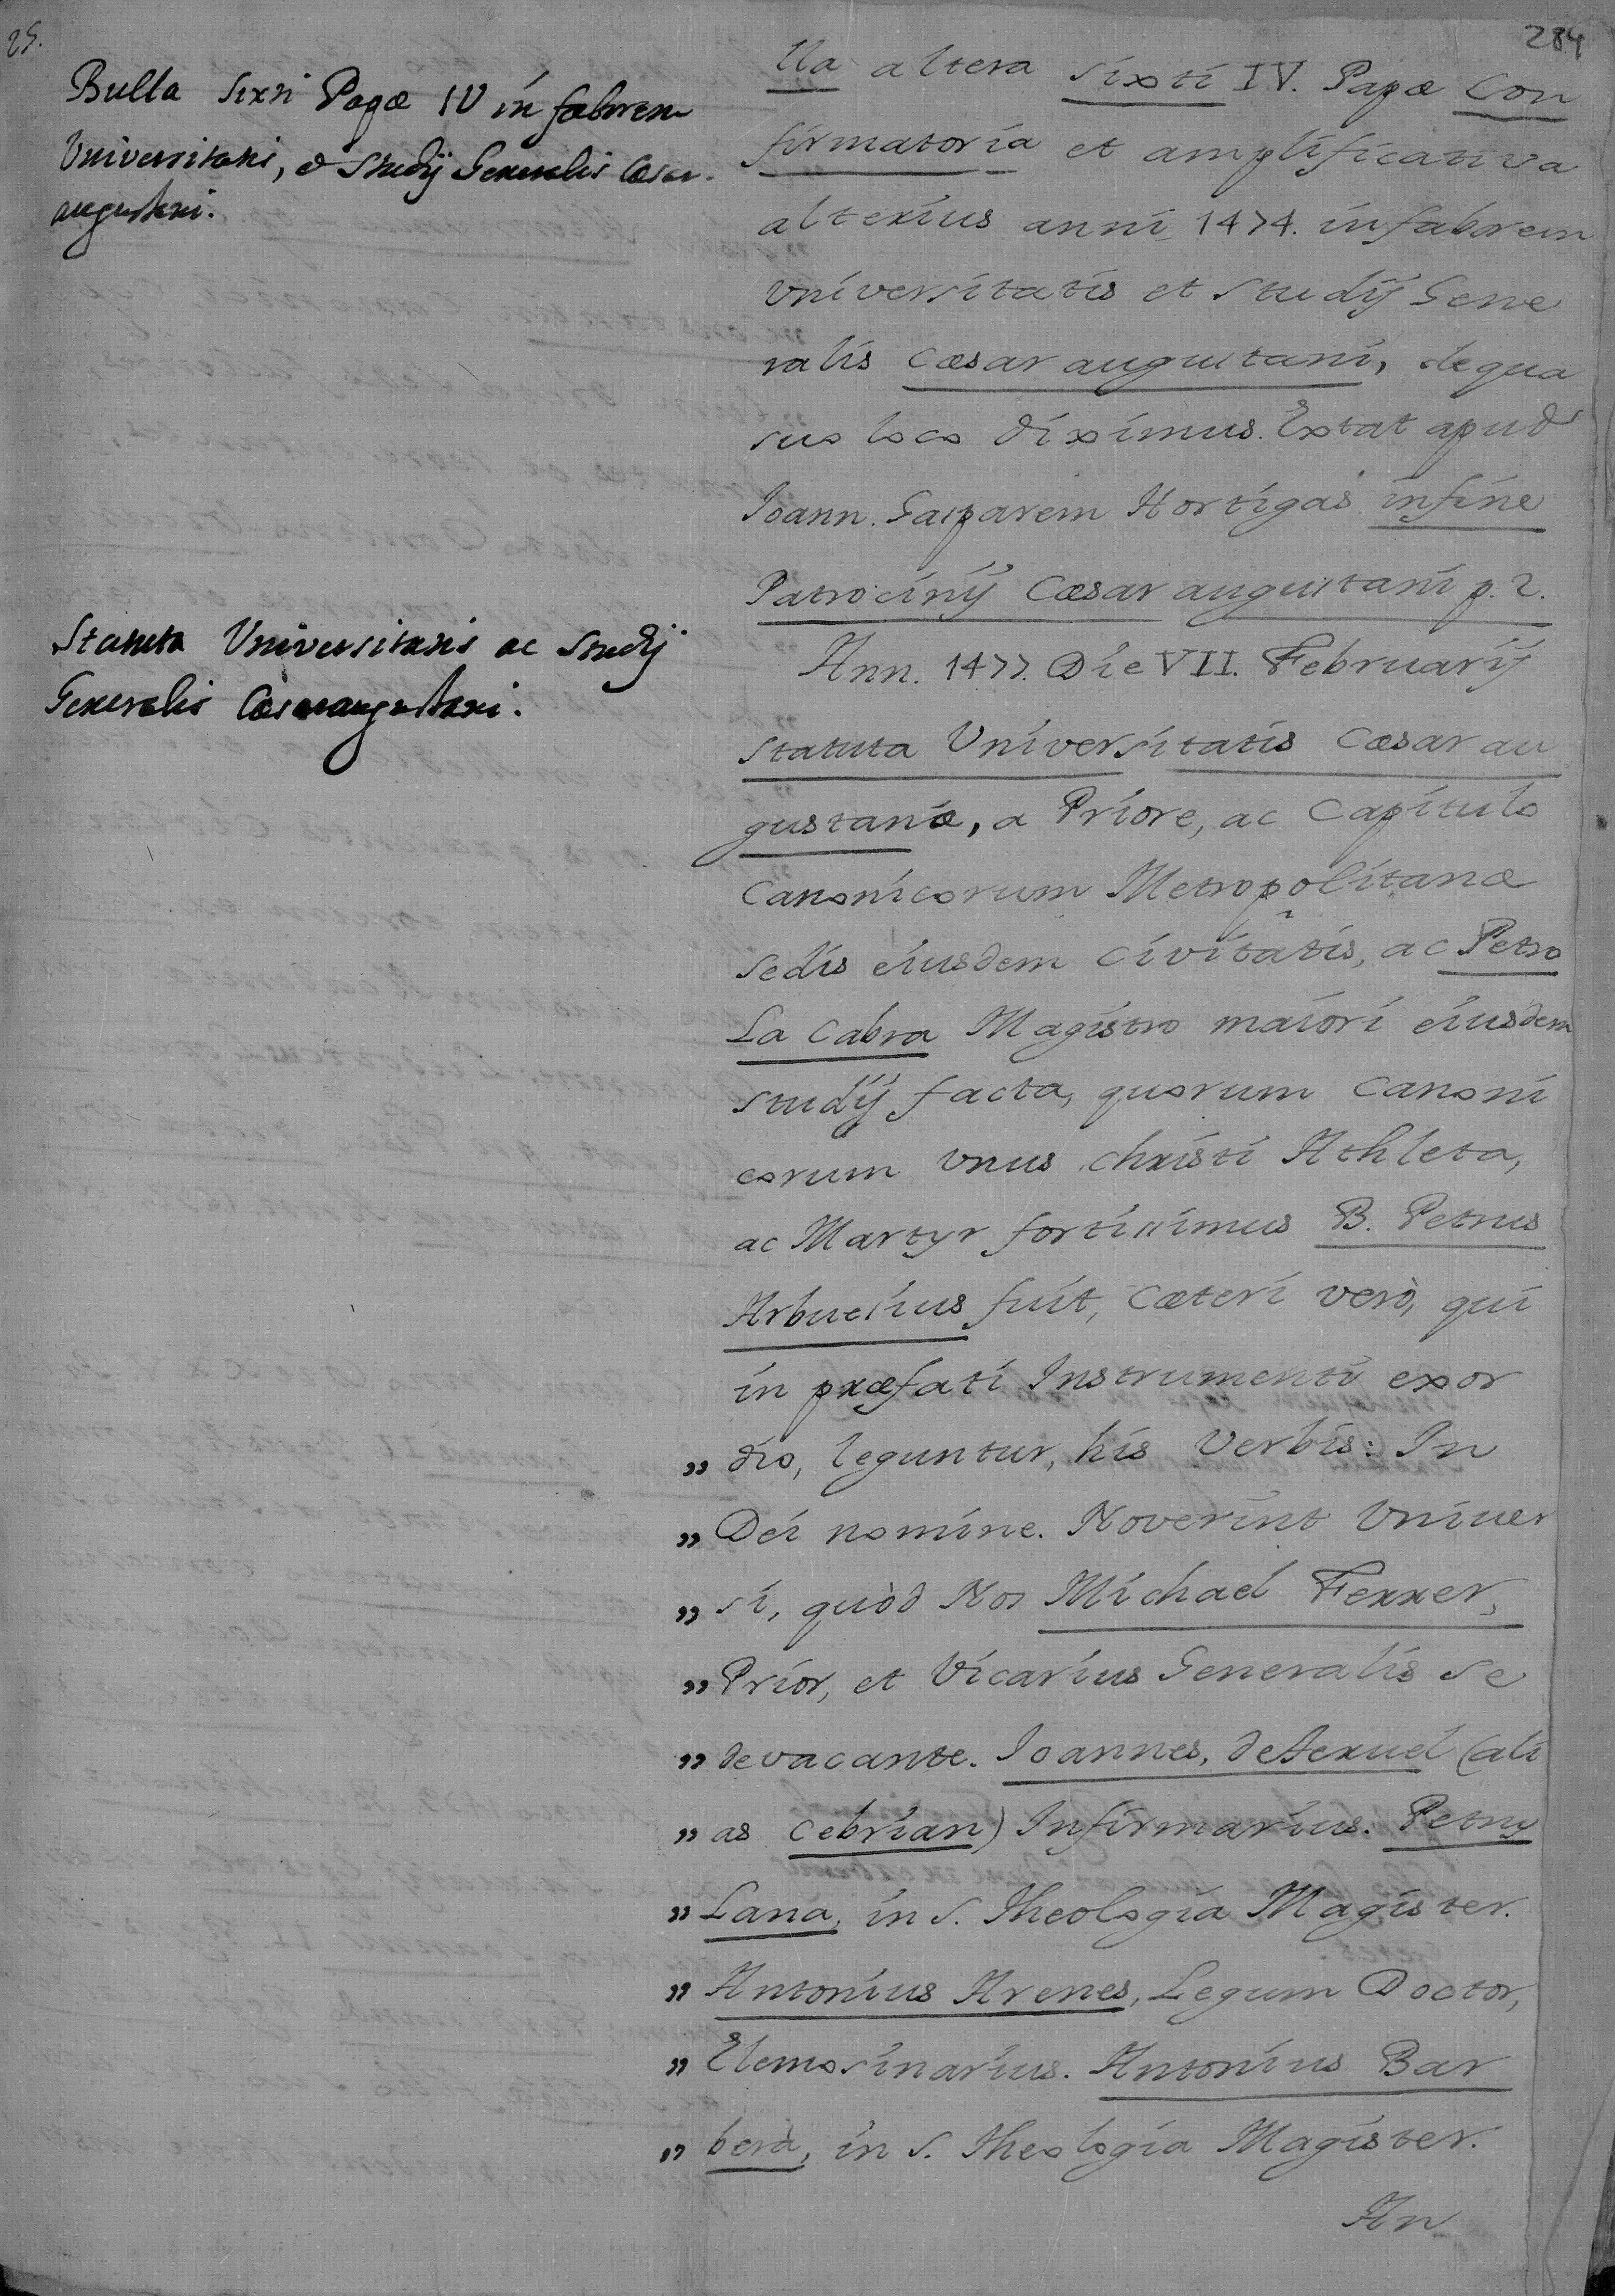 25.
284
Bulla Sixti Papæ IV in fabrem
Universitatis, & Studij Generalis Cæsar-
augustani.
lla altera Sixti IV. Papæ Con
firmatoria et amplificativa
alterius anni 1474. in faborem
Vniversitatis et Studij Gene
ralis Cæsaraugustani, de qua
suo loco diximus. Extat apud
Ioann. Gasparem Hortigas in fine
Patrocinij Cæsaraugustani p. 2.
Statuta Universitatis ac Studij
Generalis Cæsaraugustani.
Ann. 1477. Die VII. Februarij
Statuta Universitatis Cæsarau
gustanæ, a Priore, ac Capitulo
Canonicorum Metropolitanæ
Sedis eiusdem Civitatis, ac Petro
La Cabra Magistro maiori eiusdem
Studij facta, quorum Canoni
corum Vnus Christi Athleta,
ac Martyr fortissimus B. Petrus
Arbuesius fuit, Cæteri verò, qui
in præfati Instrumenti exor
„ dio, leguntur, his Verbis: In
„ Dei nomine. Noverint Vniuer
„ si, quòd Nos Michael Ferrer,
„ Prior, et Vicarius Generalis Se
„ de vacante. Ioannes, de Aexuel (ali
„ as Cebrian) Infirmarius. Petrus
„ Lana, in S. Theologia Magister.
„ Antonius Arenes, Legum Doctor,
„ Elemosinarius. Antonius Bar
„ berà, in S. Theologia Magister.
An